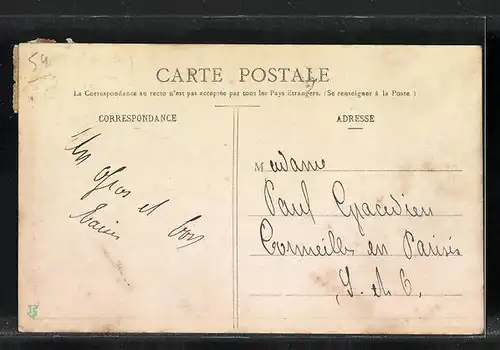 54
CARTE POSTALE
La Correspondance au recto n'est pas acceptée par tous les Pays Etrangers. (Se renseigner à la Poste)
CORRESPONDANCE
ADRESSE
Un gros et bon
Madame
Paul
Cormeilles en Parisis
S. et O.